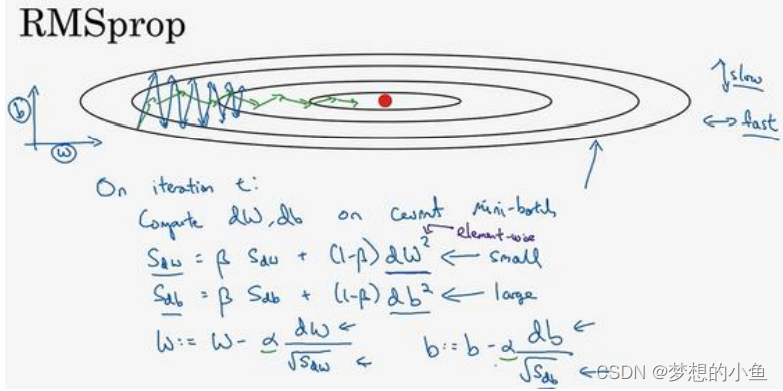 RMSprop
b
w
↕ slow
↔ fast
On iteration t:
Compute dW, db on current mini-batch
element-wise
S_dw = β S_dw + (1-β) dW² ← small
S_db = β S_db + (1-β) db² ← large
W := W - α dW/√S_dw ← b := b - α db/√S_db ←
CSDN @梦想的小鱼